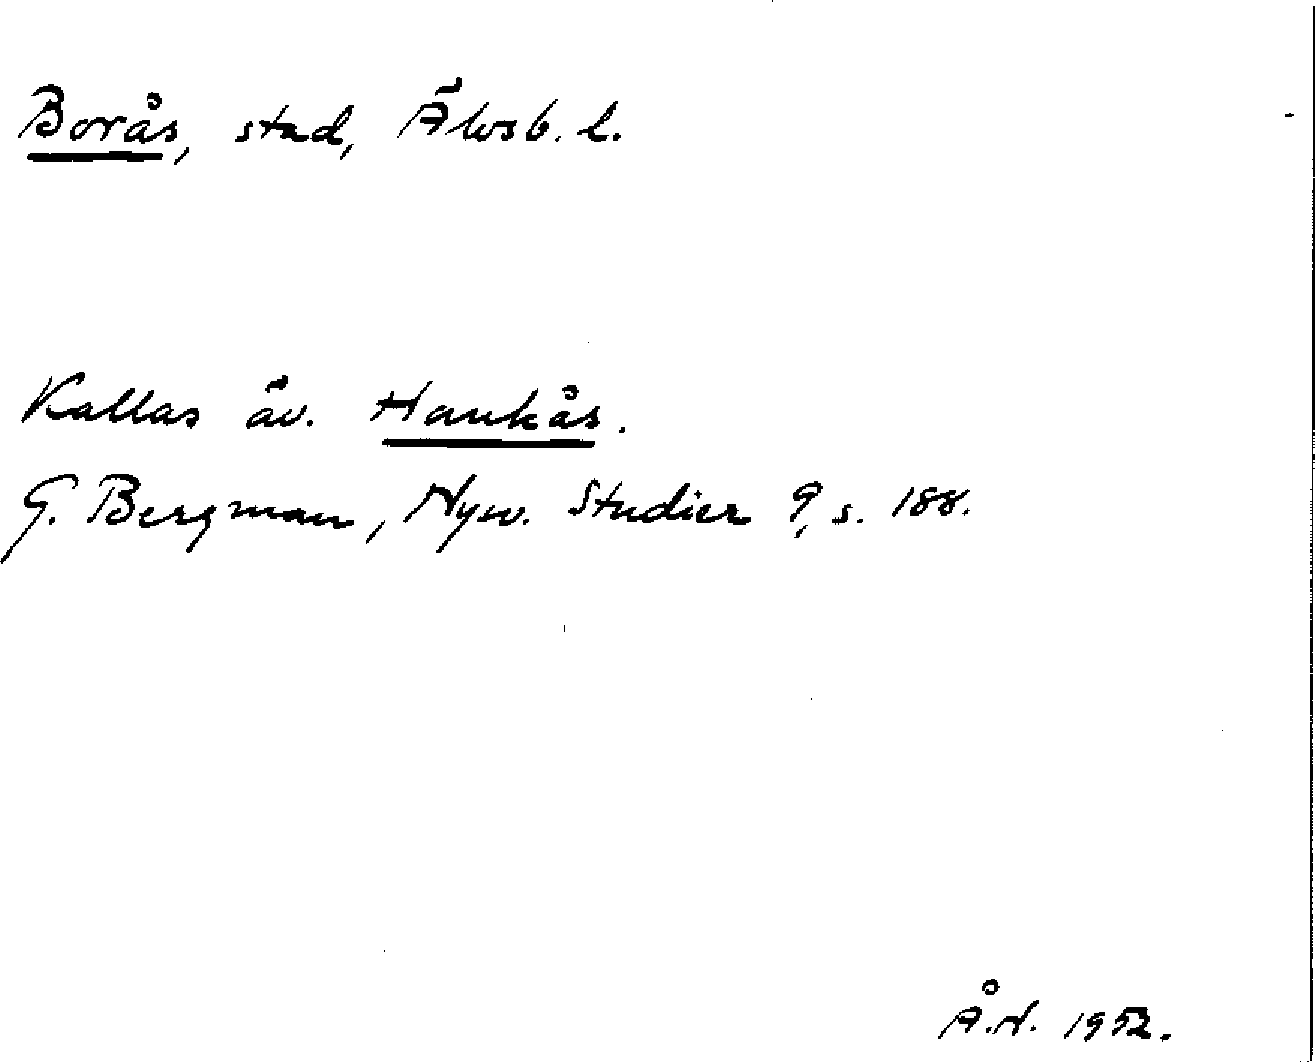 Borås, stad, Älvsb. l.
Kallas äv. Hankås.
G. Bergman, Nysv. Studier 9, s. 188.
Å.N. 1952.